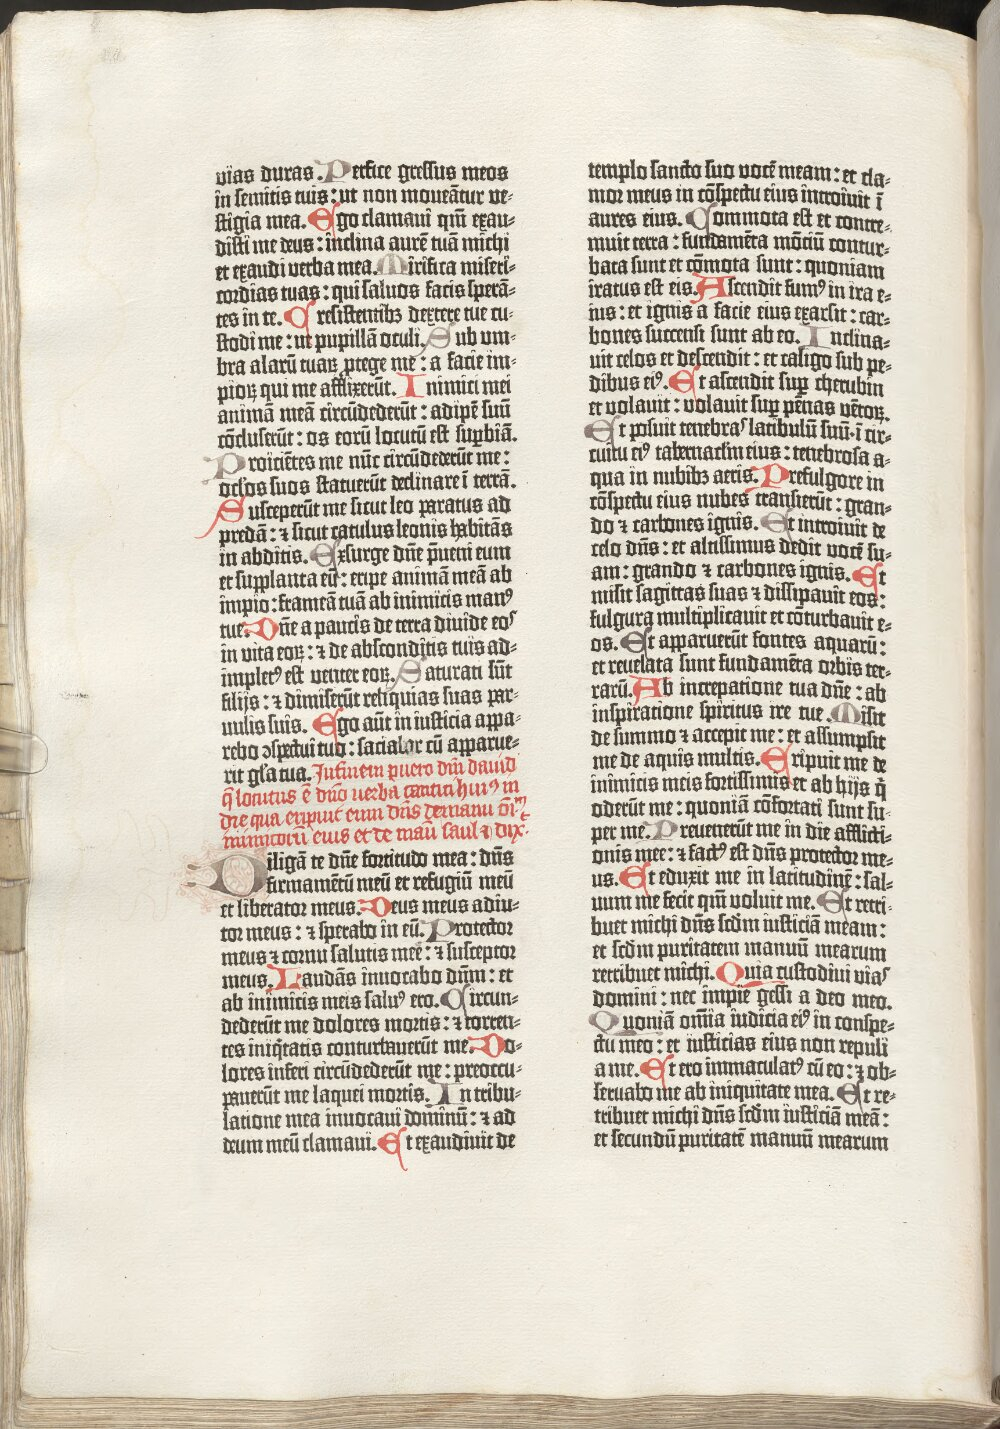 vias duras. Perfice gressus meos
in semitis tuis: ut non moveãtur ve-
stigia mea. Ego clamavi qm̃ exau-
disti me deus: inclina aurẽ tuã michi
et exaudi verba mea. Mirifica miseri-
cordias tuas: qui salvos facis sperã-
tes in te. A resistentibꝫ dextere tue cu-
stodi me: ut pupillã oculi. Sub um-
bra alarũ tuaꝝ ꝓtege me: a facie im-
pioꝝ qui me afflixerũt. Inimici mei
animã meã circũdederũt: adipẽ suũ
cõcluserũt: os eorũ locutũ est suꝑbiã.
Proiciẽtes me nũc circũdederũt me:
oc̃los suos statuerũt declinare ĩ terrã.
Susceperũt me sicut leo paratus ad
predã: ⁊ sicut catulus leonis habitãs
in abditis. Exsurge dñe p̃veni eum
et supplanta eũ: eripe animã meã ab
impio: frameã tuã ab inimicis manꝰ
tue. Dñe a paucis de terra divide eoˢ
in vita eoꝝ: ⁊ de absconditis tuis ad-
impletꝰ est venter eoꝝ. Saturati sũt
filijs: ⁊ dimiserũt reliquias suas par-
vulis suis. Ego aũt in iusticia appa-
rebo ꝯspectui tuo: saciabor cũ apparue-
rit gl̃a tua. In finem puero dñi david
q̃ locutus ẽ dño verba cantici huiꝰ in
die qua eripuit eum dñs de manu oĩm
inimicorũ eius et de manu saul ⁊ dix̃.
Diligã te dñe fortitudo mea: dñs
firmamẽtũ meũ et refugiũ meũ
et liberator meus. Deus meus adiu-
tor meus: ⁊ sperabo in eũ. Protector
meus ⁊ cornu salutis mee: ⁊ susceptor
meus. Laudãs invocabo dñm: et
ab inimicis meis salvꝰ ero. Circun-
dederũt me dolores mortis: ⁊ torren-
tes iniq̃tatis conturbaverũt me. Do-
lores inferi circũdederũt me: preoccu-
paverũt me laquei mortis. In tribu-
latione mea invocavi dominũ: ⁊ ad
deum meũ clamavi. Et exaudivit de
templo sancto suo vocẽ meam: et cla-
mor meus in cõspectu eius introivit ĩ
aures eius. Commota est et contre-
muit terra: fundamẽta mõciũ contur-
bata sunt et cõmota sunt: quoniam
iratus est eis. Ascendit fumꝰ in ira e-
ius: et ignis a facie eius exarsit: car-
bones succensi sunt ab eo. Inclina-
vit celos et descendit: et caligo sub pe-
dibus eiꝰ. Et ascendit suꝑ cherubin
et volavit: volavit suꝑ pẽnas vẽtoꝝ.
Et posuit tenebraˢ latibulũ suũ· ĩ cir-
cuitu eiꝰ tabernaclm̃ eius: tenebrosa a-
qua in nubibꝫ aeris. Prefulgore in
cõspectu eius nubes transierũt: gran-
do ⁊ carbones ignis. Et intonuit de
celo dñs: et altissimus dedit vocẽ su-
am: grando ⁊ carbones ignis. Et
misit sagittas suas ⁊ dissipavit eos:
fulgura multiplicavit et cõturbavit e-
os. Et apparuerũt fontes aquarũ:
et revelata sunt fundamẽta orbis ter-
rarũ. Ab increpatione tua dñe: ab
inspiratione spiritus ire tue. Misit
de summo ⁊ accepit me: et assumpsit
me de aquis multis. Eripuit me de
inimicis meis fortissimis et ab hijs q̃
oderũt me: quoniã cõfortati sunt su-
per me. Prevenerũt me in die afflicti-
onis mee: ⁊ factꝰ est dñs protector me-
us. Et eduxit me in latitudinẽ: sal-
vum me fecit qm̃ voluit me. Et retri-
buet michi dñs scd̃m iusticiã meam:
et scd̃m puritatem manuũ mearum
retribuet michi. Quia custodivi viaˢ
domini: nec impie gessi a deo meo.
Quoniã om̃ia iudicia eiꝰ in conspe-
ctu meo: et iusticias eius non repuli
a me. Et ero immaculatꝰ cũ eo: ⁊ ob-
servabo me ab iniquitate mea. Et re-
tribuet michi dñs scd̃m iusticiã meã:
et secundũ puritatẽ manuũ mearum